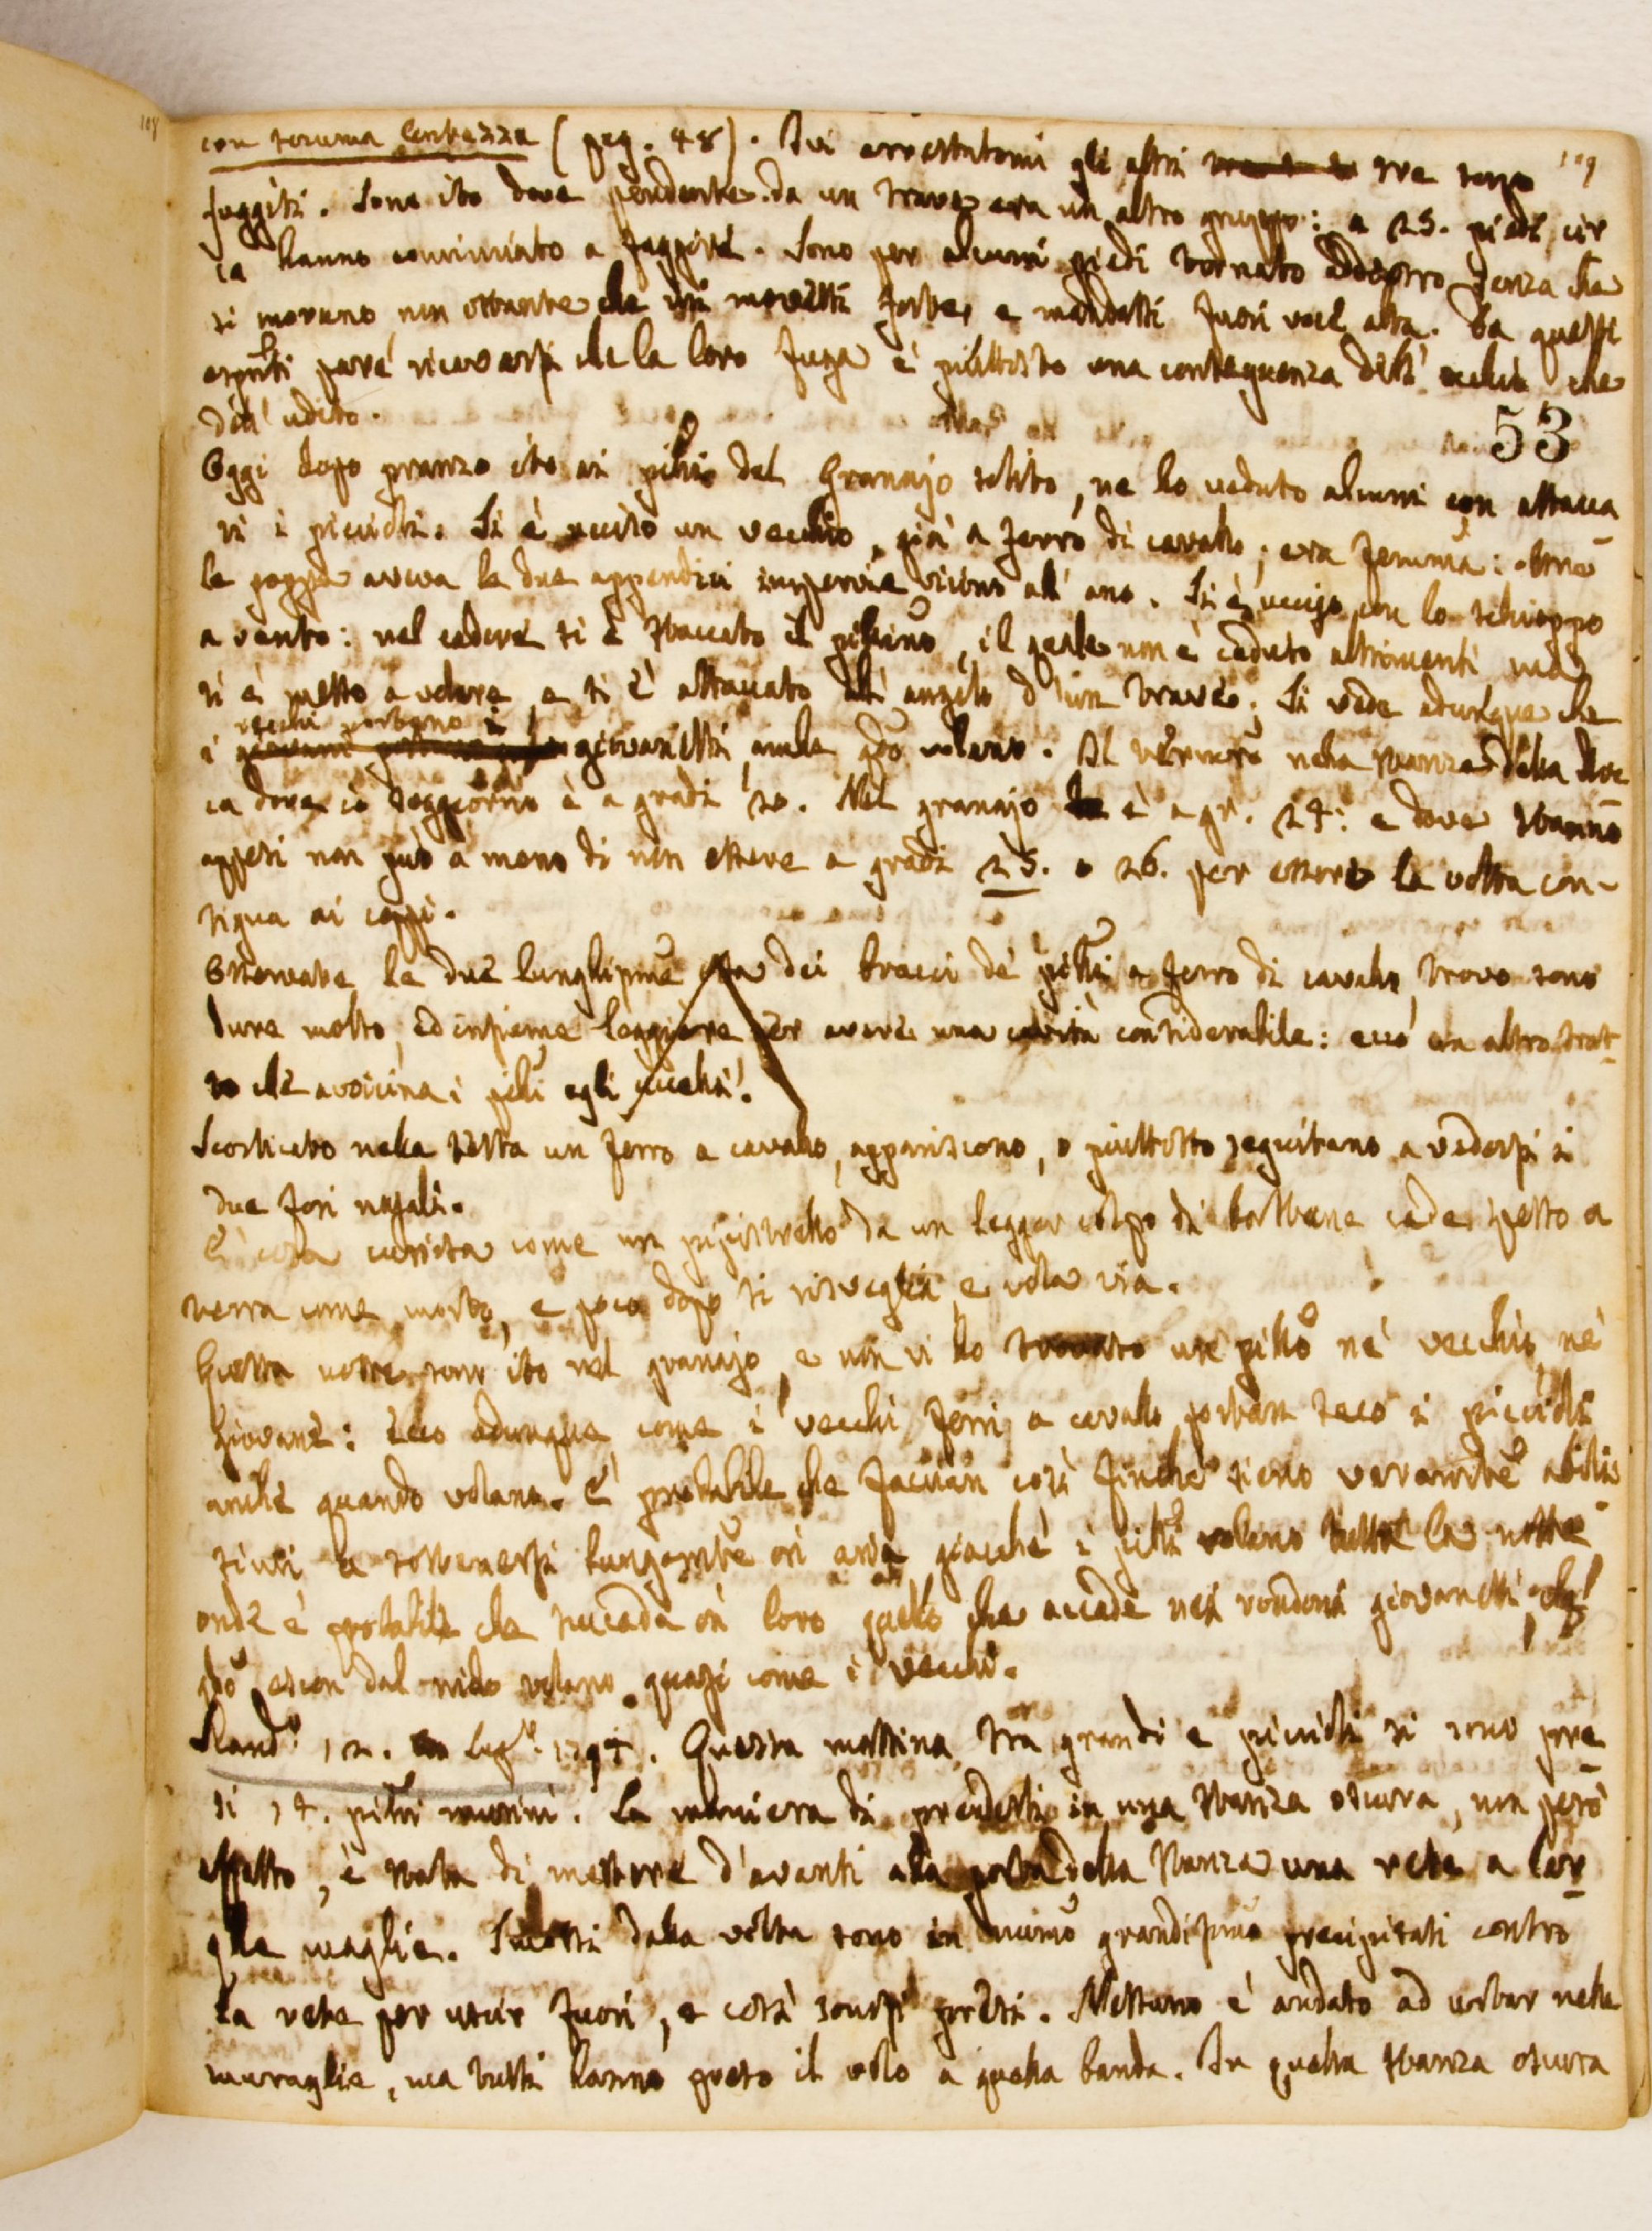 108
109
con somma lentezza (pag. 48). Ivi arrestatomi gli altri tre sono
fuggiti. Sono ito dove pendente da un trave era un altro gruppo: a 25. piedi cir
ca hanno cominciato a fuggire. Sono per alcuni piedi tornato addietro senza che
si movano non ostante che mi movessi forte, e mandassi fuori voce alta. Da questi
espti pare ricavarsi che la loro fuga è piuttosto una conseguenza dell' occhio che
dell' udito.
53
Oggi dopo pranzo ito ai pilli del Granajo solito, ne ho veduto alcuni con attacca
ti i piccioli. Si è ucciso un vecchio, già a ferro di cavallo; era femmina: oltre
le poppe aveva le due appendici impervie vicino all' ano. Si è ucciso con lo schioppo
a vento: nel cadere si è staccato il pillino, il quale non è caduto altrimenti ma
si è messo a volare, e si è attaccato all' angolo d'un trave. Si vede adunque che
vecchi portano i
i giovanetti anche qdo volano. Il termro nella stanza della Roc
ca dove io soggiorno è a gradi 20. Nel granajo è a gr. 24: e dove stanno
appesi non può a meno di non essere a gradi 25. o 26. per essere la volta con-
tigua ai coppi.
Osservate le due lunghissime ossa dei bracci de' pilli a ferro di cavallo, trovo sono
dure molto, ed insieme leggiere per avere una cavità considerabile: ecco un altro trat
to che avvicina i pilli agli uccelli!
Scorticato nella testa un ferro a cavallo, appariscono, o piuttosto seguitano a vedersi i
due fori nasali.
È cosa curiosa come un pipistrello da un legger colpo di bastone cade spesso a
terra come morto, e poco dopo si risveglia e vola via.
Questa notte sono ito nel granajo, e non vi ho trovato un pillo nè vecchio nè
giovane: ecco adunque come i vecchi ferri a cavallo portan seco i piccioli
anche quando volano. È probabile che faccian così finchè sieno veramte abili
a sostenersi lungamte in aria, giacchè i pilli volano tutta la notte
onde è probabile che succeda in loro quello che accade nei rondoni giovanetti, che
qdo escon dal nido volano quasi come i vecchi.
Scando 12. Lugo 1794. Questa mattina tra grandi e piccioli si sono pre
si 14. pilli murini. La maniera di prenderli in una stanza oscura, non però
affatto, è stata di mettere d'avanti alla porta della stanza una rete a lar
ghe maglie. Scossi dalla volta sono in numo grandissimo precipitati contro
la rete per uscir fuori, e così sonosi presi. Nessuno è andato ad urtar nelle
muraglie, ma tutti hanno preso il volo a quella banda. In quella stanza oscura